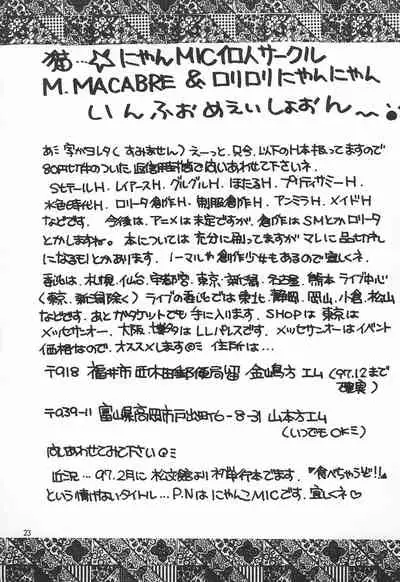 猫…☆にゃんMICイロ人サークル
M.MACABRE & ロリロリにゃんにゃん
いんふぉめえいしょおん〜
あミ字がヨレタ(すみません)えーっと、只今、以下のH本扱ってますので
80円切手のついた返信用封筒で問いあわせて下さいネ。
SセーラームーンH.レイアースH.グルグルH.ほたるH.プリティサミーH.
水色時代H.ロリータ創作H.制服創作H.アンミラH.メイドH
などです。今後は、アニメは未定ですが、創作はSMとかロリータ
とかしますね。本については充分に刷ってますが、マレに品切れ
になるモノとかあります。ノーマルや創作少女もあるので宜しくネ。
委託は、札幌、仙台、宇都宮、東京、新潟、名古屋、熊本ライブ中心
(東京、新潟除く)ライブの委託では東北、静岡、岡山、小倉、松山
などです。あとガタケットでも手に入ります。SHOPは東京は
メッセサンオー、大阪、博多はLLパレスです。メッセサンオーはイベント
価格なので、オススメします 住所は…
〒918 福井市西木田郵便局留 金嶋方 エム('97.12まで
確実)
〒939-11 富山県高岡市戸出町6-8-31 山本方エム
(いつでもOKミ)
問いあわせてみて下さい
近況…97.2月に松文館より初単行本でます。"食べちゃうぞ!!"
という情けないタイトル…P.Nはにゃんこ MICです。宜しくネ♡
23